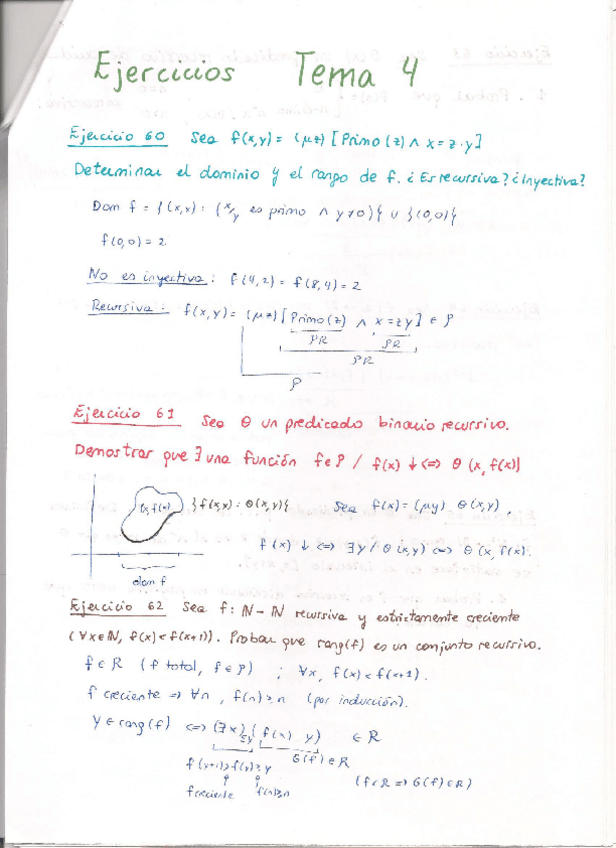 Ejercicios Tema 4
Ejercicio 60 Sea f(x,y) = (μz) [Primo(z) ∧ x = z·y]
Determinar el dominio y el rango de f. ¿Es recursiva? ¿Inyectiva?
Dom f = {(x,y) : (x/y es primo ∧ y≠0)} ∪ {(0,0)}
f(0,0) = 2
No es inyectiva: f(4,2) = f(8,4) = 2
Recursiva: f(x,y) = (μz) [Primo(z) ∧ x = zy] ∈ P
PR PR
PR
P
Ejercicio 61 Sea θ un predicado binario recursivo.
Demostrar que ∃ una función f∈P / f(x) ↓ <=> θ(x, f(x))
(x, f(x)) } f(x,y) : θ(x,y) { Sea f(x) = (μy) θ(x,y).
f(x) ↓ <=> ∃y / θ(x,y) <=> θ(x, f(x).
dom f
Ejercicio 62 Sea f: ℕ → ℕ recursiva y estrictamente creciente
(∀x∈ℕ, f(x) < f(x+1)). Probar que rang(f) es un conjunto recursivo.
f ∈ R (f total, f ∈ P) ; ∀x, f(x) < f(x+1).
f creciente => ∀n, f(n) ≥ n (por inducción).
y ∈ rang(f) <=> (∃x)≤y ( f(x) y) ∈ R
f(y+1) > f(y) ≥ y G(f) ∈ R
f creciente f(n)≥n (f∈R => G(f)∈R)